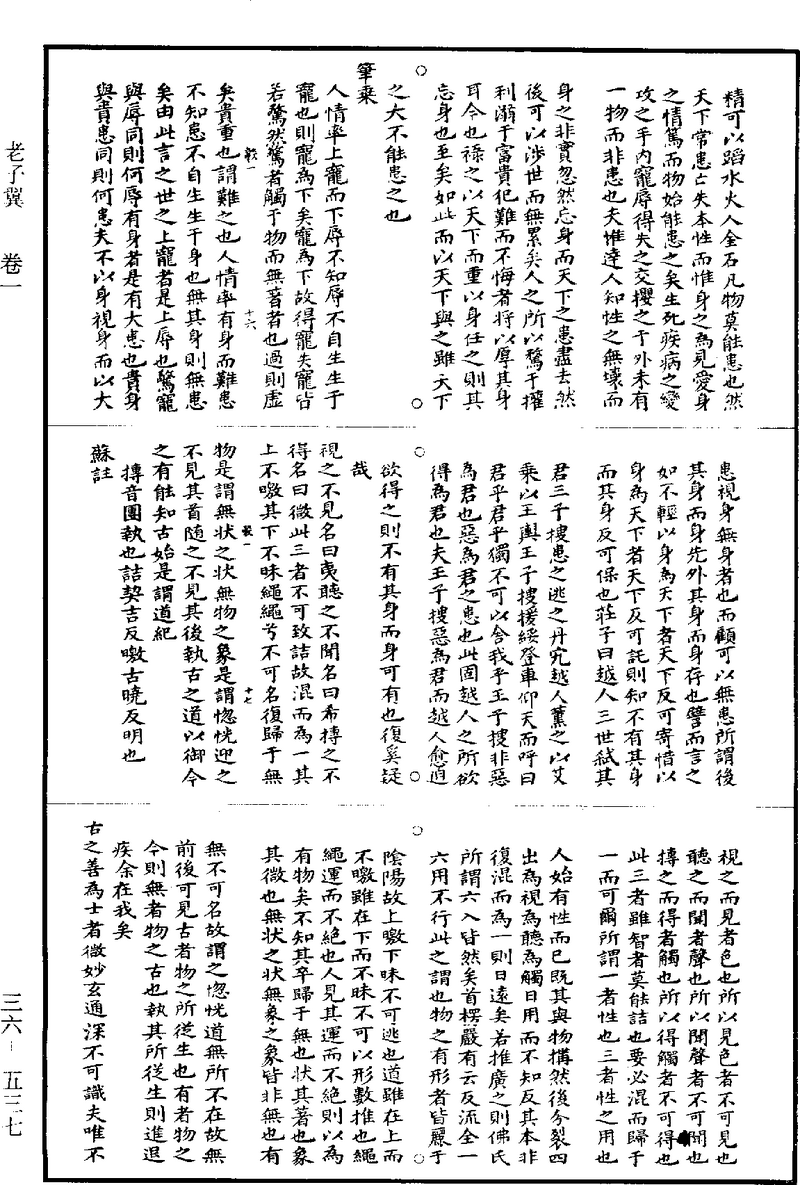 老子翼 卷一
三六—五三七
精可以蹈水火入金石凡物莫能患也然
天下常患亡失本性而惟身之為見愛身
之情篤而物始能患之矣生死疾病之變
攻之于內寵辱得失之交攖之于外未有
一物而非患也夫惟達人知性之無壞而
身之非實忽然忘身而天下之患盡去然
後可以涉世而無累矣人之所以騖于權
利溺于富貴犯難而不悔者將以厚其身
耳今也祿之以天下而重以身任之則其
忘身也至矣如此而以天下與之雖天下
之大不能患之也
筆乘
人情率上寵而下辱不知辱不自生生于
寵也則寵為下矣寵為下故得寵失寵皆
若驚然驚者觸于物而無著者也過則虛
矣貴重也謂難之也人情率有身而難患
不知患不自生生于身也無其身則無患
矣由此言之世之上寵者是上辱也驚寵
與辱同則何辱有身者是有大患也貴身
與貴患同則何患夫不以身視身而以大
患視身無身者也而顧可以無患所謂後
其身而身先外其身而身存也譬而言之
如不輕以身為天下者天下反可寄惜以
身為天下者天下反可託則知不有其身
而其身反可保也莊子曰越人三世弒其
君王子搜患之逃之丹穴越人薰之以艾
乘以王輿王子搜援綏登車仰天而呼曰
君乎君乎獨不可以舍我乎王子搜非惡
為君也惡為君之患也此固越人之所欲
得為君也夫王子搜惡為君而越人愈迫
欲得之則不有其身而身可有也復奚疑
哉
視之不見名曰夷聽之不聞名曰希搏之不
得名曰微此三者不可致詰故混而為一其
上不皦其下不昧繩繩兮不可名復歸于無
物是謂無狀之狀無物之象是謂惚恍迎之
不見其首隨之不見其後執古之道以御今
之有能知古始是謂道紀
搏音團執也詰契吉反皦古曉反明也
蘇註
視之而見者色也所以見色者不可見也
聽之而聞者聲也所以聞聲者不可聞也
搏之而得者觸也所以得觸者不可得也
此三者雖智者莫能詰也要必混而歸于
一而可爾所謂一者性也三者性之用也
人始有性而已既其與物搆然後分裂四
出為視為聽為觸日用而不知反其本非
復混而為一則日遠矣若推廣之則佛氏
所謂六入皆然矣首楞嚴有云反流全一
六用不行此之謂也物之有形者皆麗于
陰陽故上皦下昧不可逃也道雖在上而
不皦雖在下而不昧不可以形數推也繩
繩運而不絕也人見其運而不絕則以為
有物矣不知其卒歸于無也狀其著也象
其微也無狀之狀無象之象皆非無也有
無不可名故謂之惚恍道無所不在故無
前後可見古者物之所從生也有者物之
今則無者物之古也執其所從生則進退
疾徐在我矣
古之善為士者微妙玄通深不可識夫唯不